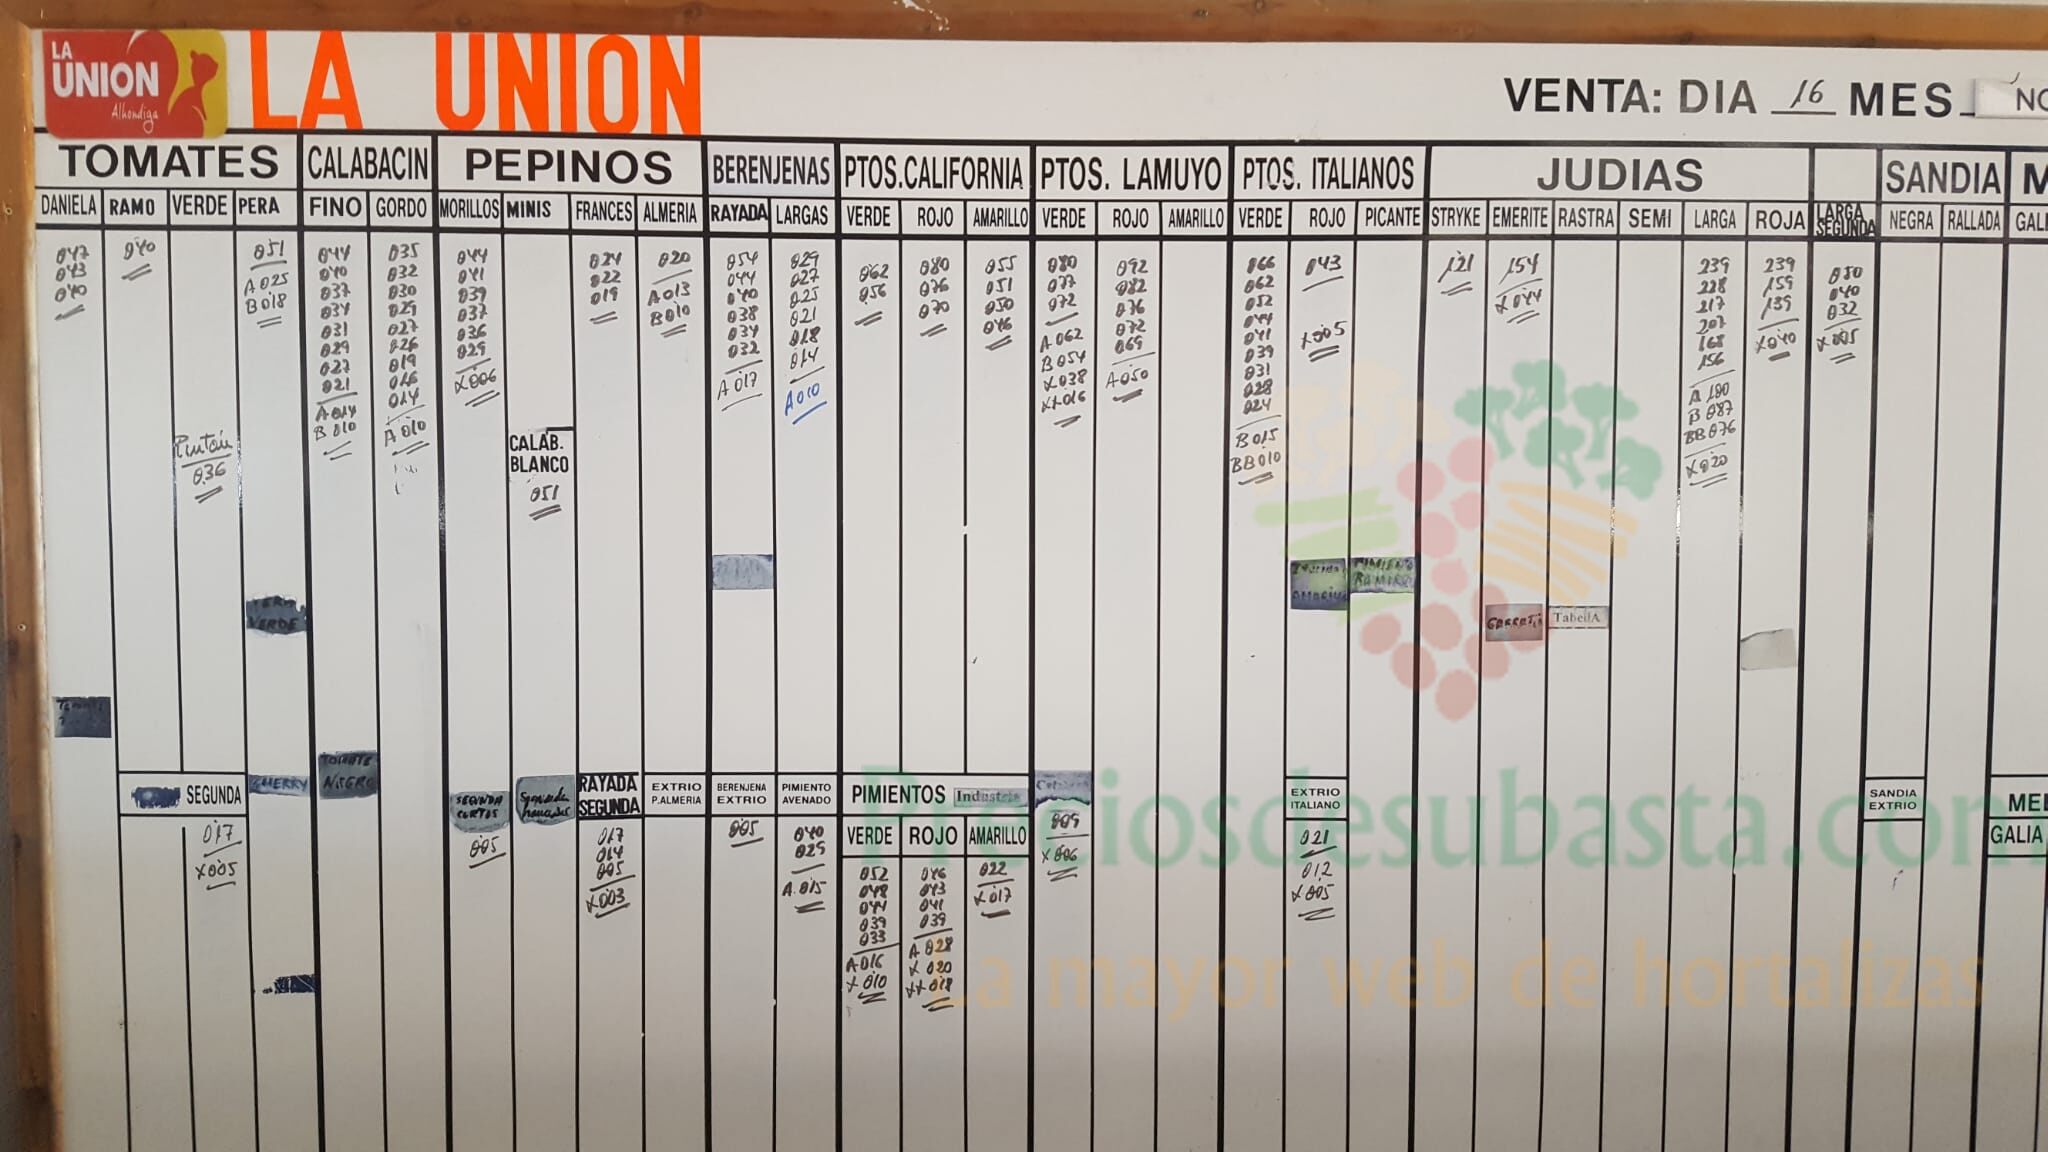 LA
UNION
Alhondiga
LA UNION
VENTA: DIA 16 MES NO
TOMATES CALABACIN PEPINOS BERENJENAS PTOS.CALIFORNIA PTOS. LAMUYO PTOS. ITALIANOS JUDIAS SANDIA M
DANIELA RAMO VERDE PERA FINO GORDO MORILLOS MINIS FRANCES ALMERIA RAYADA LARGAS VERDE ROJO AMARILLO VERDE ROJO AMARILLO VERDE ROJO PICANTE STRYKE EMERITE RASTRA SEMI LARGA ROJA LARGA SEGUNDA NEGRA RALLADA GALI
047
043
040
040
Pintón
036
051
A 025
B 018
044
040
037
034
031
029
027
021
A 014
B 010
035
032
030
029
027
026
019
016
014
A 010
044
041
039
037
036
029
X006
CALAB.
BLANCO
051
024
022
019
020
A013
B010
054
044
040
038
034
032
A 017
029
027
025
021
018
014
A010
062
056
080
076
070
055
051
050
046
080
077
072
A 062
B 054
X038
XX016
092
082
076
072
069
A 050
066
062
052
044
041
039
031
028
024
B 015
BB010
043
X005
121
154
X044
239
228
217
207
168
156
A 100
B 087
BB 076
X020
239
159
139
X040
050
040
032
X005
VERDE
PIMIENTO
RAMIRO
TabellA
SEGUNDA
017
X005
CHERRY
TOMATE
NEGRO
SEGUNDA
CORTOS
005
RAYADA
SEGUNDA
017
014
005
X003
EXTRIO
P.ALMERIA
BERENJENA
EXTRIO
005
PIMIENTO
AVENADO
040
029
A.015
PIMIENTOS Industria
VERDE ROJO AMARILLO
052
048
044
039
033
A016
X 010
046
043
041
039
A 028
X 020
XX 018
022
X017
009
X006
EXTRIO
ITALIANO
021
012
X005
SANDIA
EXTRIO
MEL
GALIA
Preciosdesubasta.com
La mayor web de hortalizas